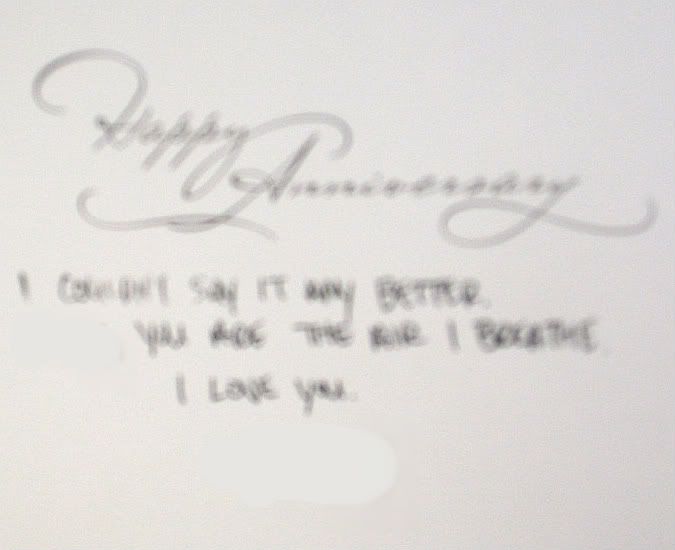 Happy Anniversary
I COULDN'T SAY IT ANY BETTER.
YOU ARE THE AIR I BREATHE.
I LOVE YOU.